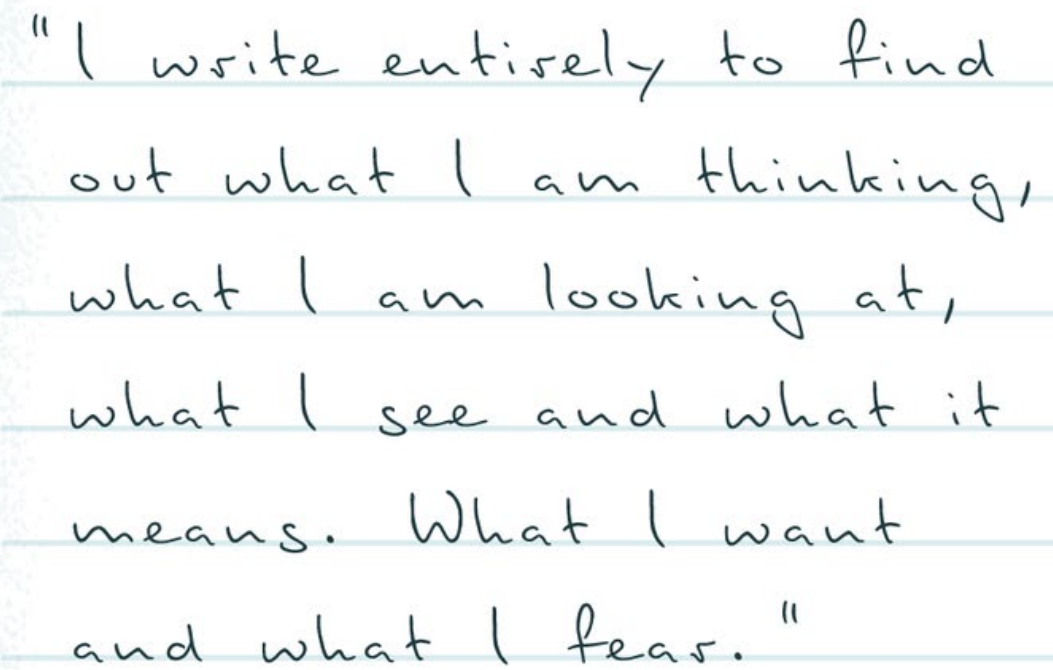 "I write entirely to find
out what I am thinking,
what I am looking at,
what I see and what it
means. What I want
and what I fear."